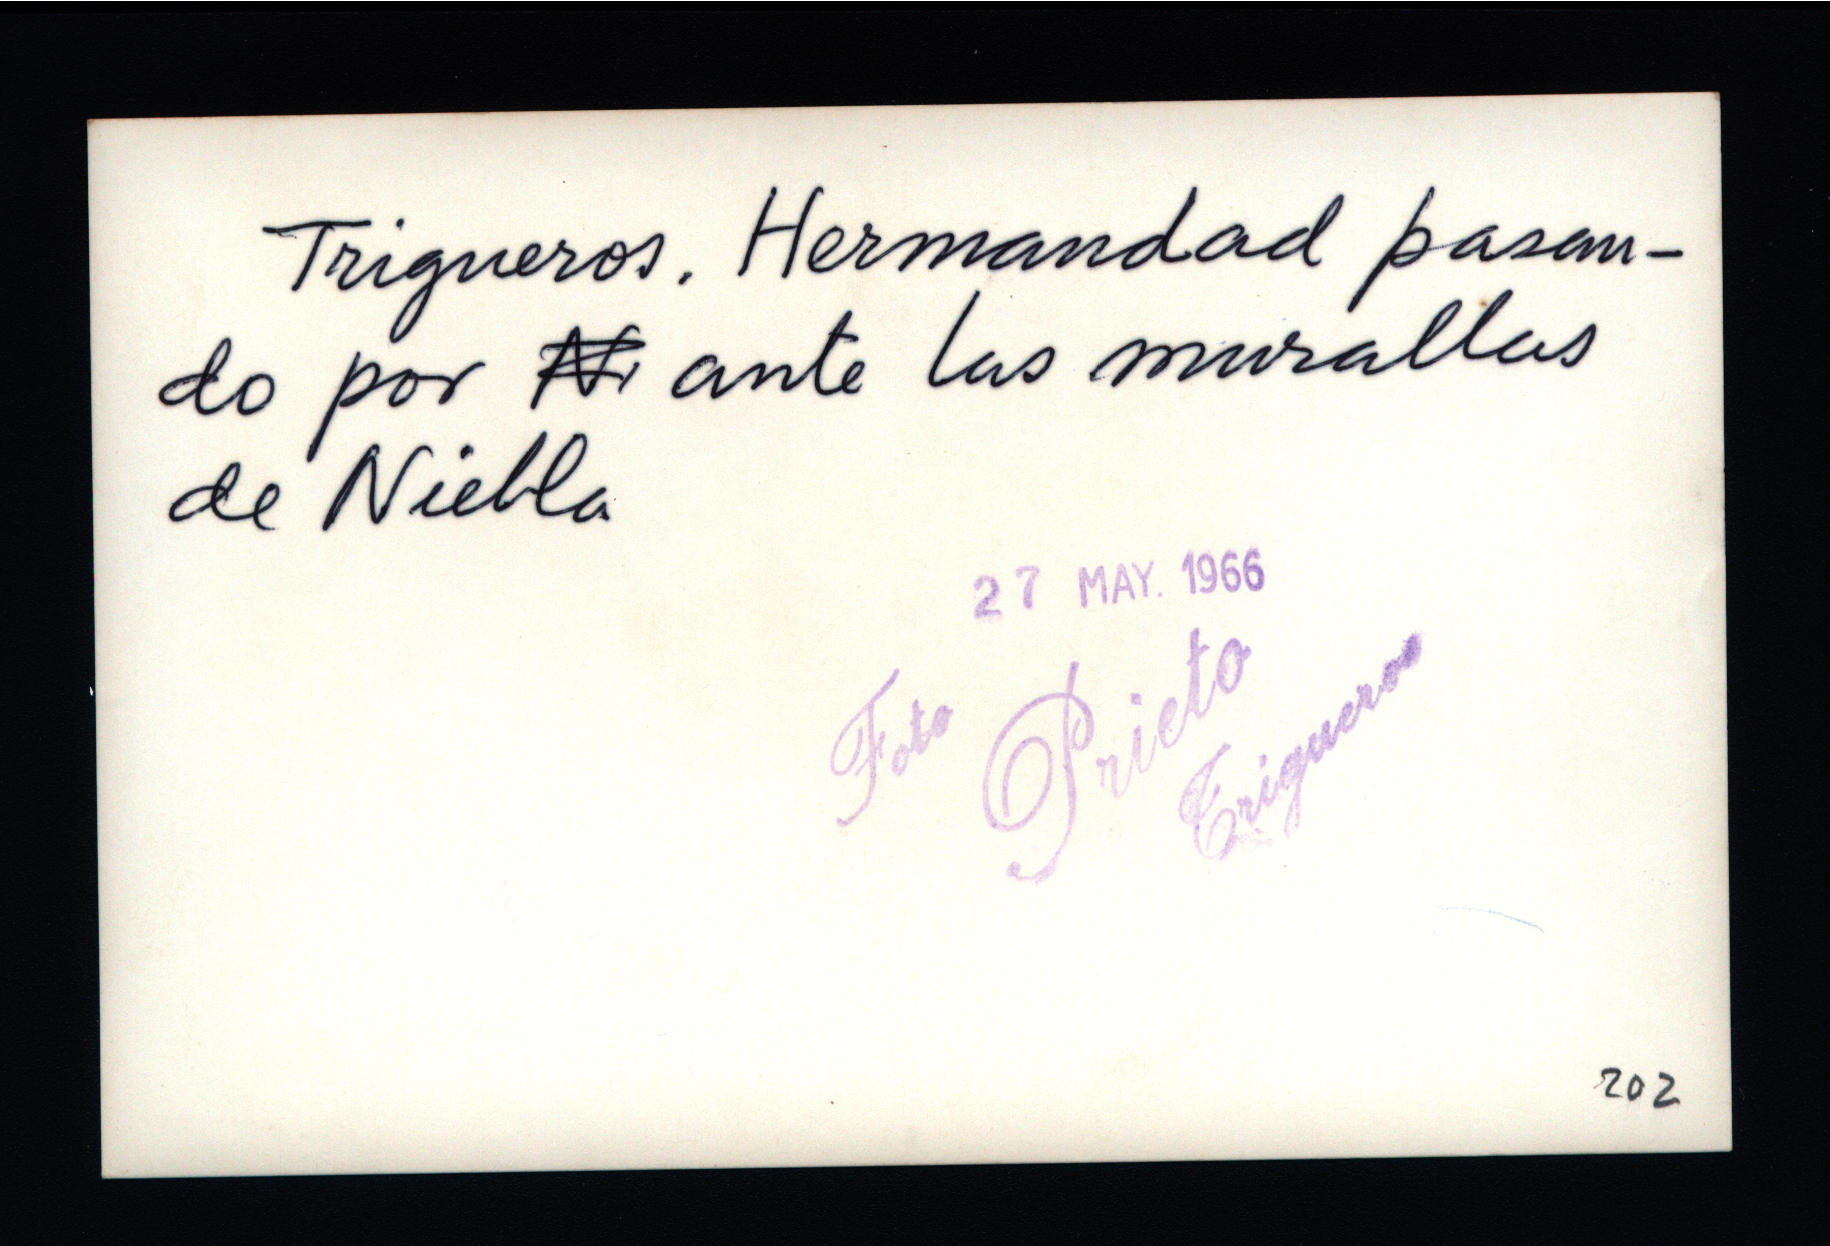 Trigueros. Hermandad pasan-
do por Ni ante las murallas
de Niebla
27 MAY. 1966
Foto Prieto
Trigueros
202